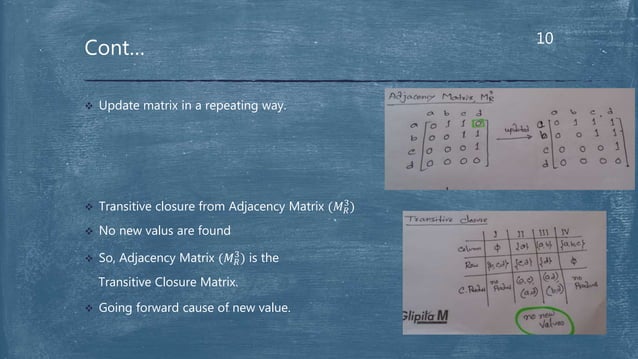 10
Cont...
Update matrix in a repeating way.
Adjacency Matrix, M_R^3
a b c d
a 0 1 1 0
b 0 0 1 1
c 0 0 0 1
d 0 0 0 0
updated
a b c d
a 0 1 1 1
b 0 0 1 1
c 0 0 0 1
d 0 0 0 0
Transitive closure from Adjacency Matrix (M_R^3)
No new valus are found
So, Adjacency Matrix (M_R^3) is the
Transitive Closure Matrix.
Going forward cause of new value.
Transitive closure
I II III IV
Column φ {a} {a,b} {a,b,c}
Row {b,c,d} {c,d} {d} φ
C. Product no Product (a,c) (a,d) (a,d) (b,d) no Product
no new
values
Glipila M